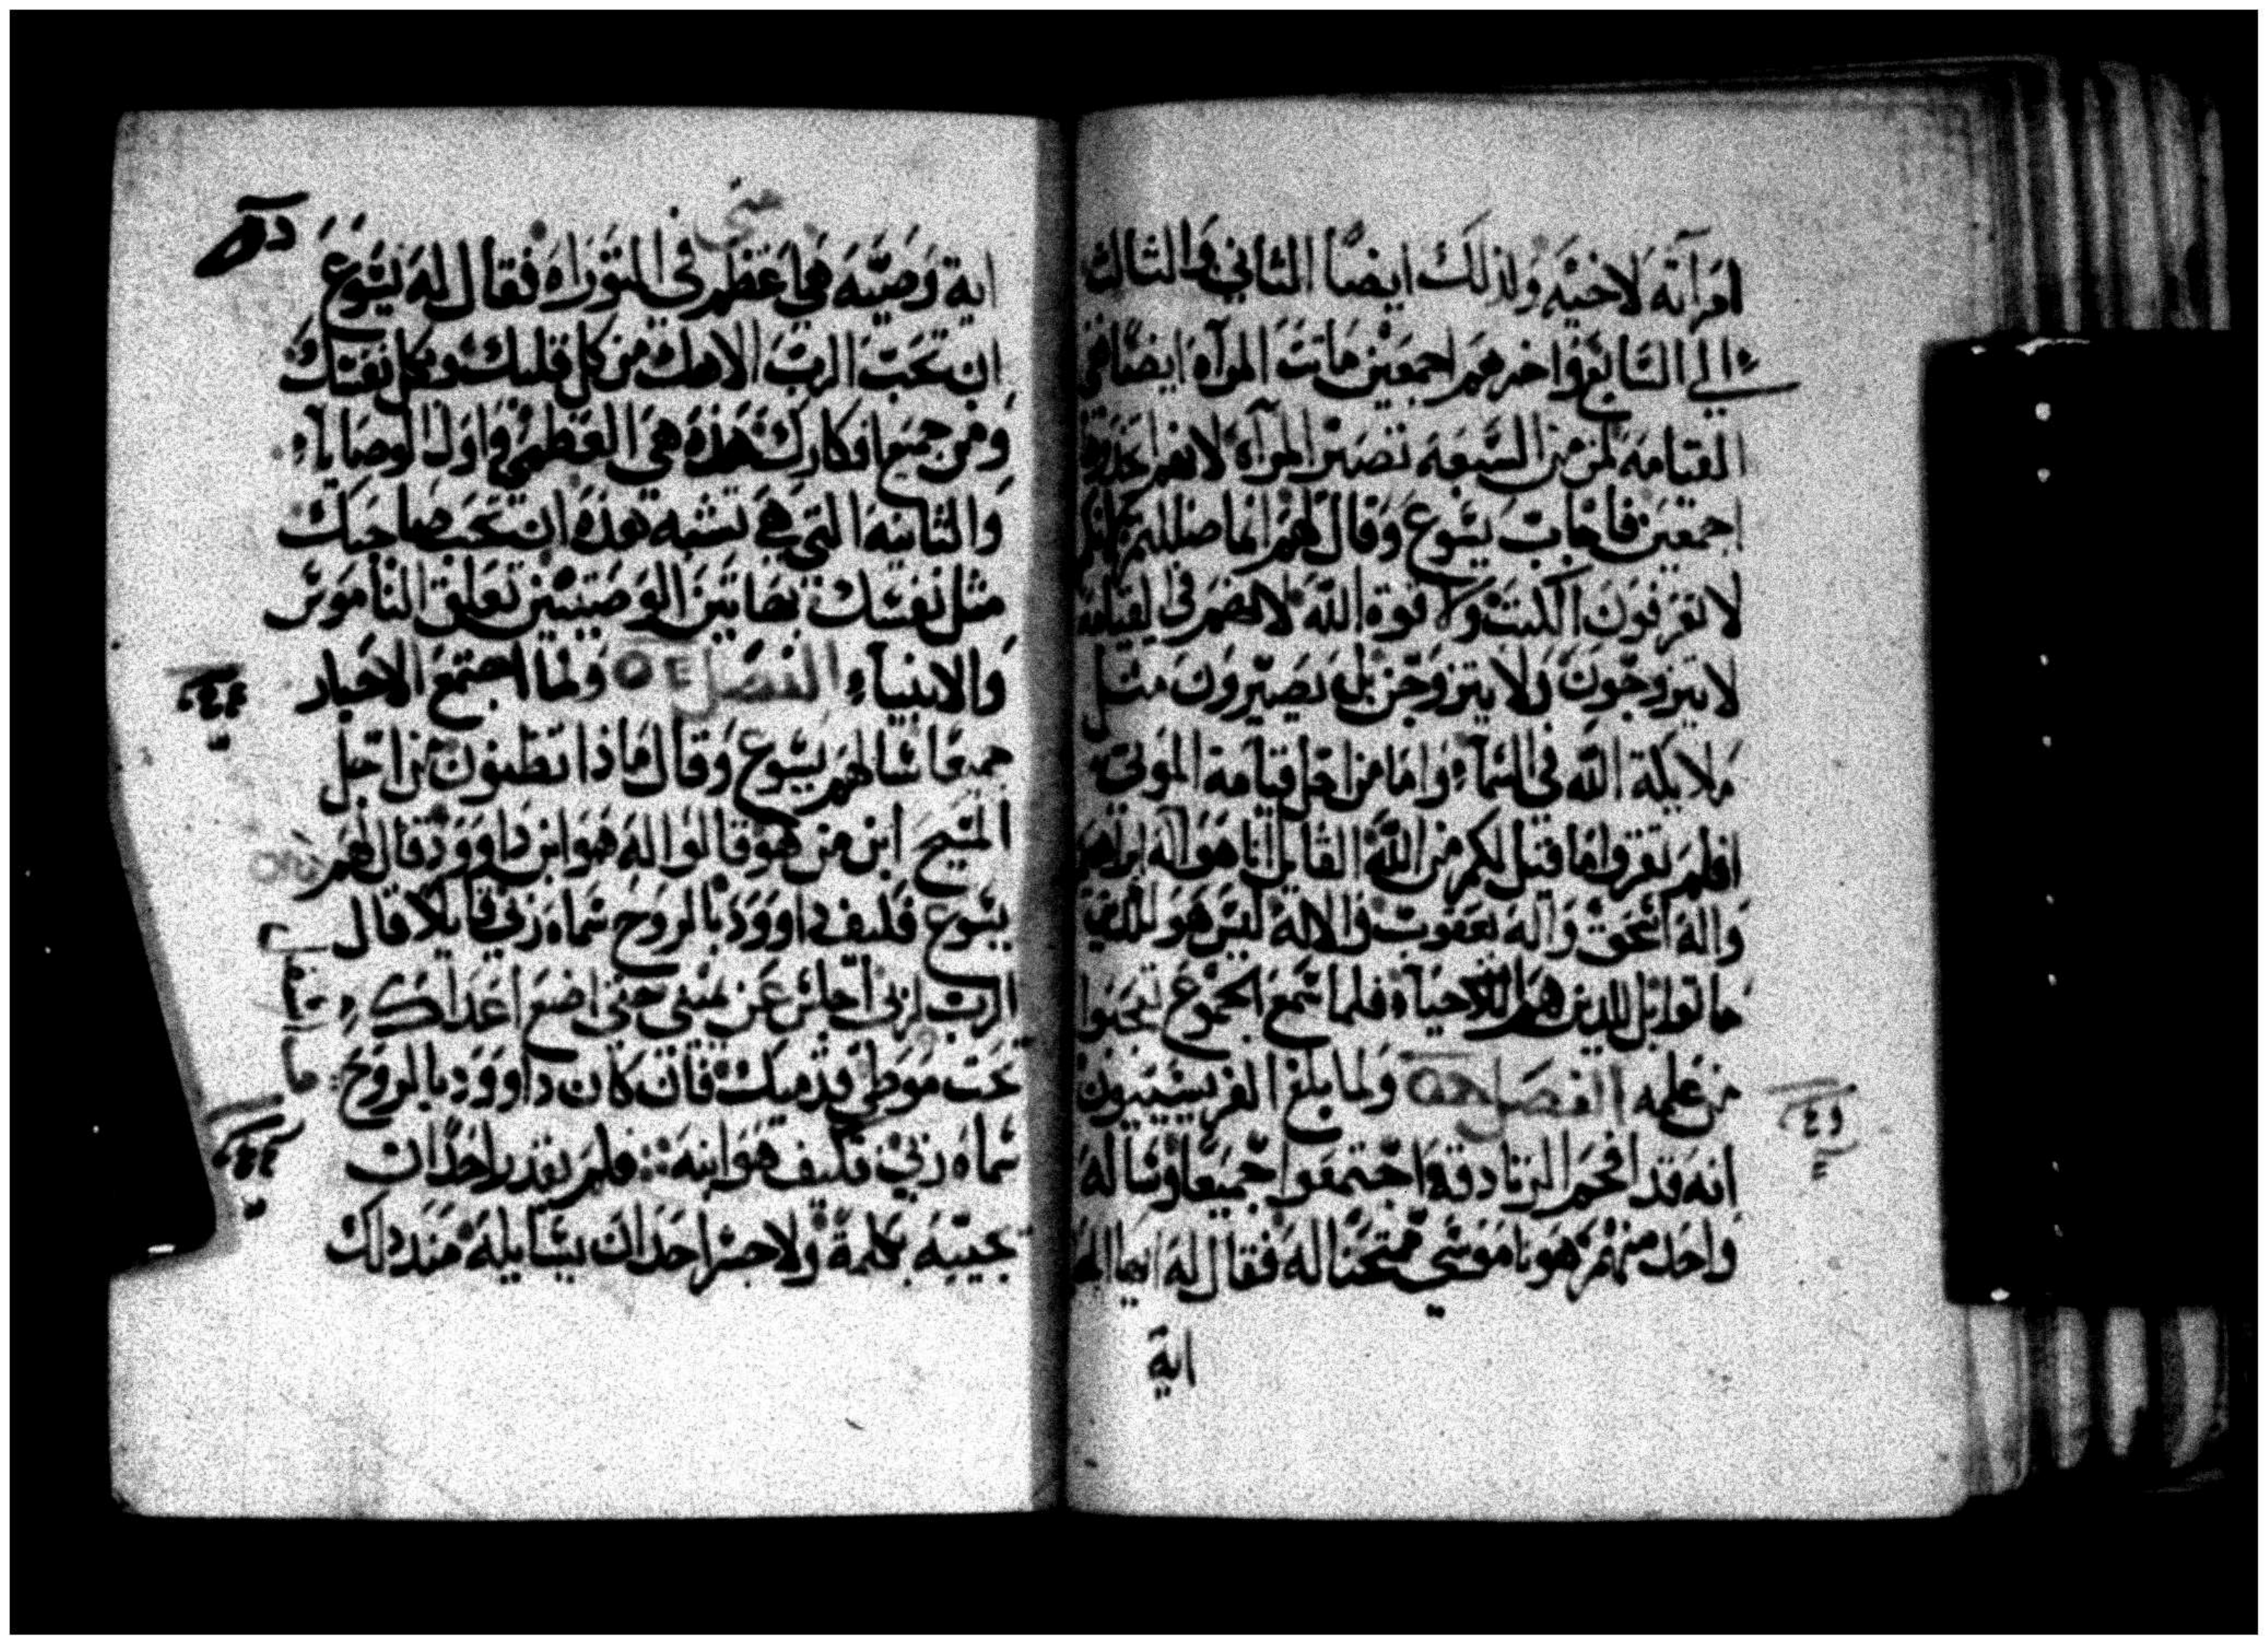 امرآته لاخيه ولذلك ايضا الثاني والثالث
الي السابع واخرهم اجمعين ماتت المرآه ايضا في
القيامه لمن من السبعه تصير المرآه لانهم
اجمعين فاجاب يسوع وقال لهم انما ضللتم لانكم
لا تعرفون الكتب ولا قوة الله لانهم في القيامة
لا يتزوجون ولا يتزوجن بل يصيرون مثل
ملايكة الله في السمآء واما من اجل قيامة الموتى
افلم تقروا ما قيل لكم من الله القايل انا هو اله ابراهيم
واله اسحق واله يعقوب والاله ليس هو
بل للاحيآء فلما سمع الجموع تعجبوا
من علمه الفصل ولما بلغ الفريسيون
انه قد افحم الزنادقه اجتمعوا جميعا وساله
واحد منهم ممتحنا له فقال له ايها
اية
متى
اية وصيه هي اعظم في التوراه فقال له يسوع
ان تحب الرب الاهك من كل قلبك وبكل نفسك
ومن جميع افكارك هذه هي العظمى واول الوصايآء
والثانيه التي هي تشبه هذه ان تحب صاحبك
مثل نفسك بهاتين الوصيتين تعلق الناموس
والانبيآء الفصل ولما اجتمع الاحبار
جميعا سالهم يسوع وقال ماذا تظنون من اجل
المسيح ابن من هو قالوا له هو ابن داوود قال لهم
يسوع فكيف داوود بالروح سماه ربي قايلا قال
الرب لربي اجلس عن يميني حتى اضع اعداك
تحت موطي قدميك فان كان داوود بالروح
سماه ربي فكيف هو ابنه فلم يقدر احد ان
يجيبه بكلمة ولا جسر احد ان يسايله منذ ذلك